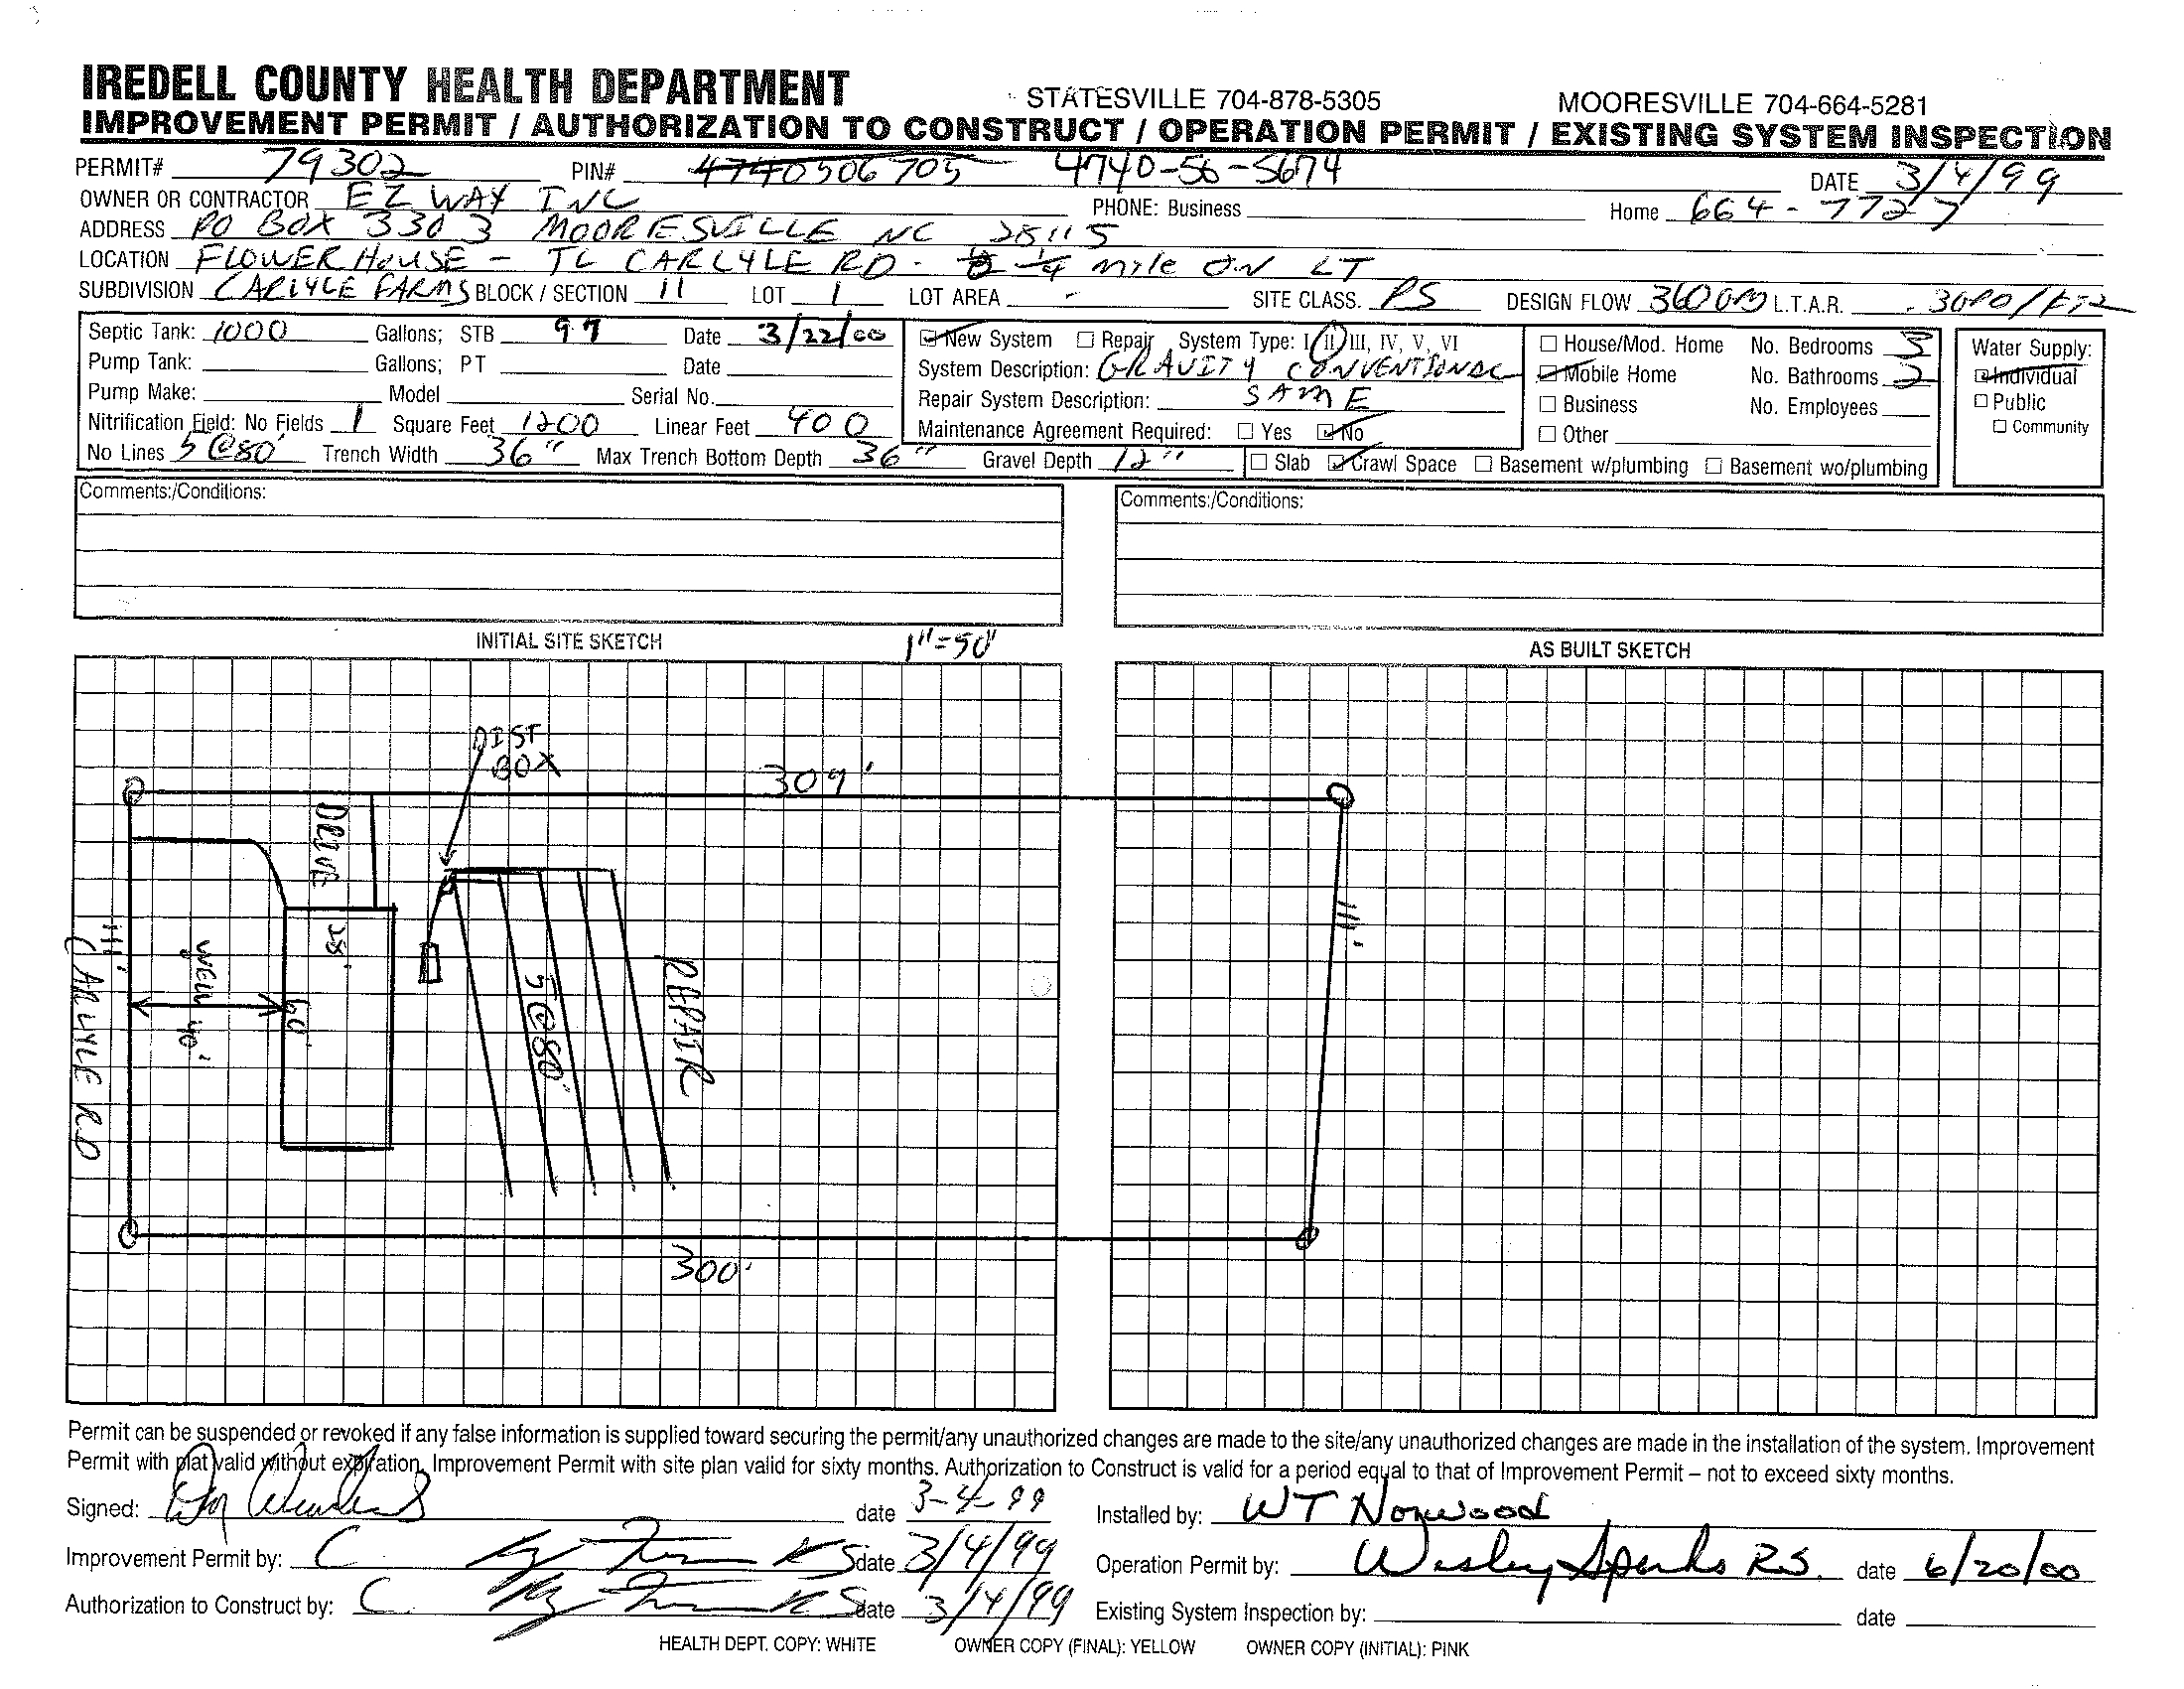 IREDELL COUNTY HEALTH DEPARTMENT STATESVILLE 704-878-5305 MOORESVILLE 704-664-5281
IMPROVEMENT PERMIT / AUTHORIZATION TO CONSTRUCT / OPERATION PERMIT / EXISTING SYSTEM INSPECTION
PERMIT# 79302 PIN# 4740506705 4740-56-5674 DATE 3/4/99
OWNER OR CONTRACTOR EZ WAY INC PHONE: Business Home 664-7727
ADDRESS PO BOX 3303 MOORESVILLE NC 28115
LOCATION FLOWER HOUSE - TL CARLYLE RD. 1/4 mile ON LT
SUBDIVISION CARLYLE FARMS BLOCK / SECTION 11 LOT 1 LOT AREA - SITE CLASS. PS DESIGN FLOW 360 L.T.A.R.
Septic Tank: 1000 Gallons; STB 97 Date 3/22/00
Pump Tank: Gallons; PT Date
Pump Make: Model Serial No.
Nitrification Field: No Fields 1 Square Feet 1200 Linear Feet 400
No Lines 5 @80' Trench Width 36" Max Trench Bottom Depth 36" Gravel Depth 12"
New System Repair System Type: I, II, III, IV, V, VI
System Description: GRAVITY CONVENTIONAL
Repair System Description: SAME
Maintenance Agreement Required: Yes No
Slab Crawl Space Basement w/plumbing Basement wo/plumbing
House/Mod. Home No. Bedrooms 3
Mobile Home No. Bathrooms 2
Business No. Employees
Other
Water Supply:
Individual
Public
Community
Comments:/Conditions:
Comments:/Conditions:
INITIAL SITE SKETCH 1"=50'
AS BUILT SKETCH
DIST
BOX
309'
DRIVE
28'
111'
CARLYLE RD
40'
60'
5@80'
REPAIR
111'
300'
Permit can be suspended or revoked if any false information is supplied toward securing the permit/any unauthorized changes are made to the site/any unauthorized changes are made in the installation of the system. Improvement
Permit with plat valid without expiration. Improvement Permit with site plan valid for sixty months. Authorization to Construct is valid for a period equal to that of Improvement Permit – not to exceed sixty months.
Signed: date 3-4-99 Installed by: WT Norwood
Improvement Permit by: date 3/4/99 Operation Permit by: Wesley Sparks RS. date 6/20/00
Authorization to Construct by: date 3/4/99 Existing System Inspection by: date
HEALTH DEPT. COPY: WHITE OWNER COPY (FINAL): YELLOW OWNER COPY (INITIAL): PINK